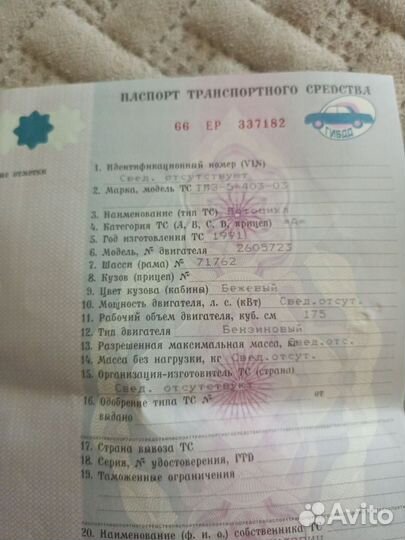 ПАСПОРТ ТРАНСПОРТНОГО СРЕДСТВА
66 ЕР 337182
ГИБДД
ые отметки
1. Идентификационный номер (VIN)
Свед. отсутствуют
2. Марка, модель ТС ТМЗ-5-403-03
3. Наименование (тип ТС) Мотоцикл
4. Категория ТС (А, В, С, D, прицеп) "А"
5. Год изготовления ТС 1991
6. Модель, № двигателя 2605723
7. Шасси (рама) № 71762
8. Кузов (прицеп) №
9. Цвет кузова (кабины) Бежевый
10. Мощность двигателя, л. с. (кВт) Свед.отсут.
11. Рабочий объем двигателя, куб. см 175
12. Тип двигателя Бензиновый
13. Разрешенная максимальная масса, кг Свед.отс.
14. Масса без нагрузки, кг Свед.отсут.
15. Организация-изготовитель ТС (страна)
Свед. отсутствуют
16. Одобрение типа ТС № от
выдано
17. Страна вывоза ТС
18. Серия, № удостоверения, ГТД
19. Таможенные ограничения
20. Наименование (ф. и. о.) собственника ТС
Avito